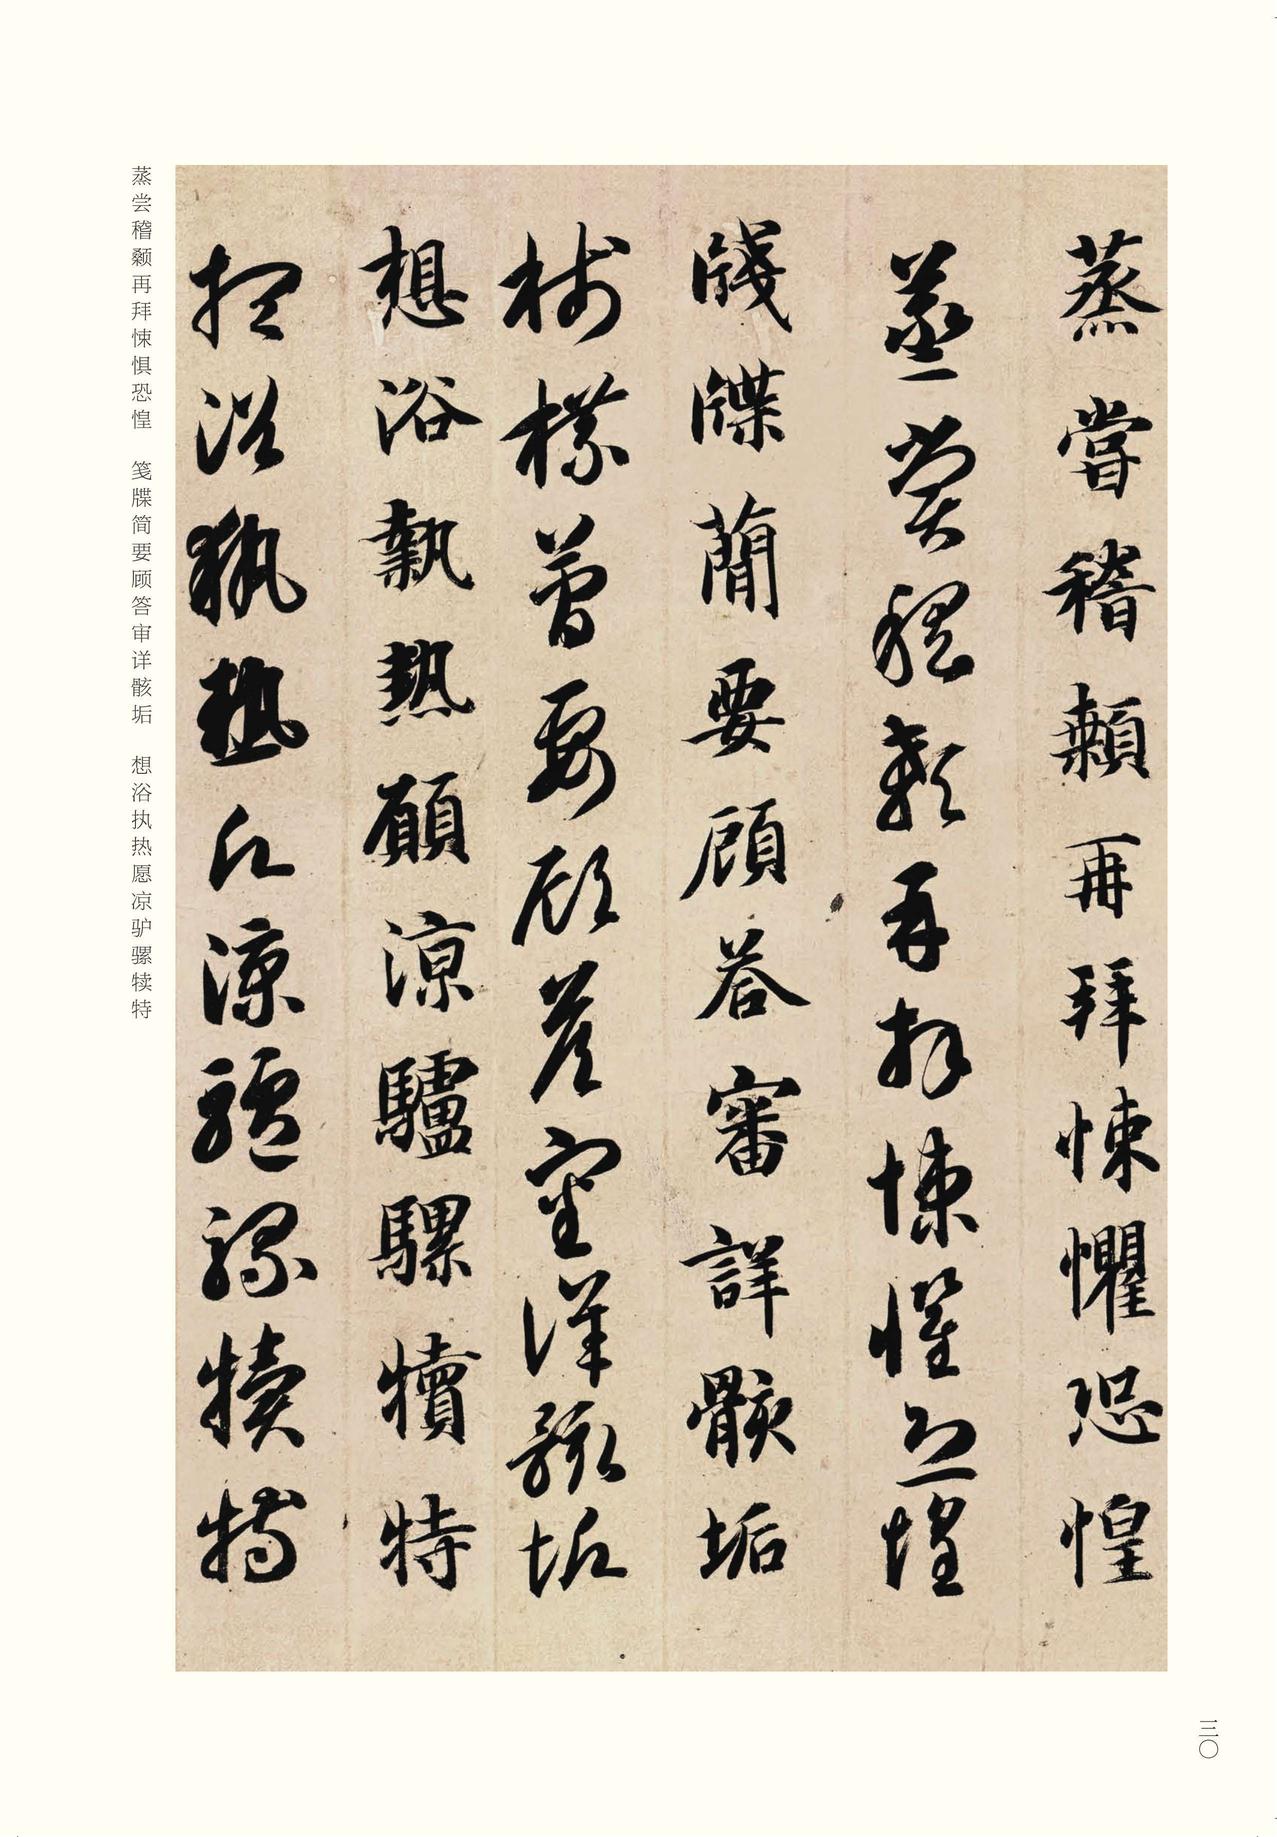 蒸嘗稽顙再拜悚懼恐惶
蒸嘗稽顙再拜悚懼恐惶
牋牒蕳要顧荅審詳骸垢
牋牒蕳要顧荅審詳骸垢
想浴執熱願涼驢騾犢特
想浴執熱願涼驢騾犢特
蒸尝稽颡再拜悚惧恐惶　笺牒简要顾答审详骸垢　想浴执热愿凉驴骡犊特
三〇